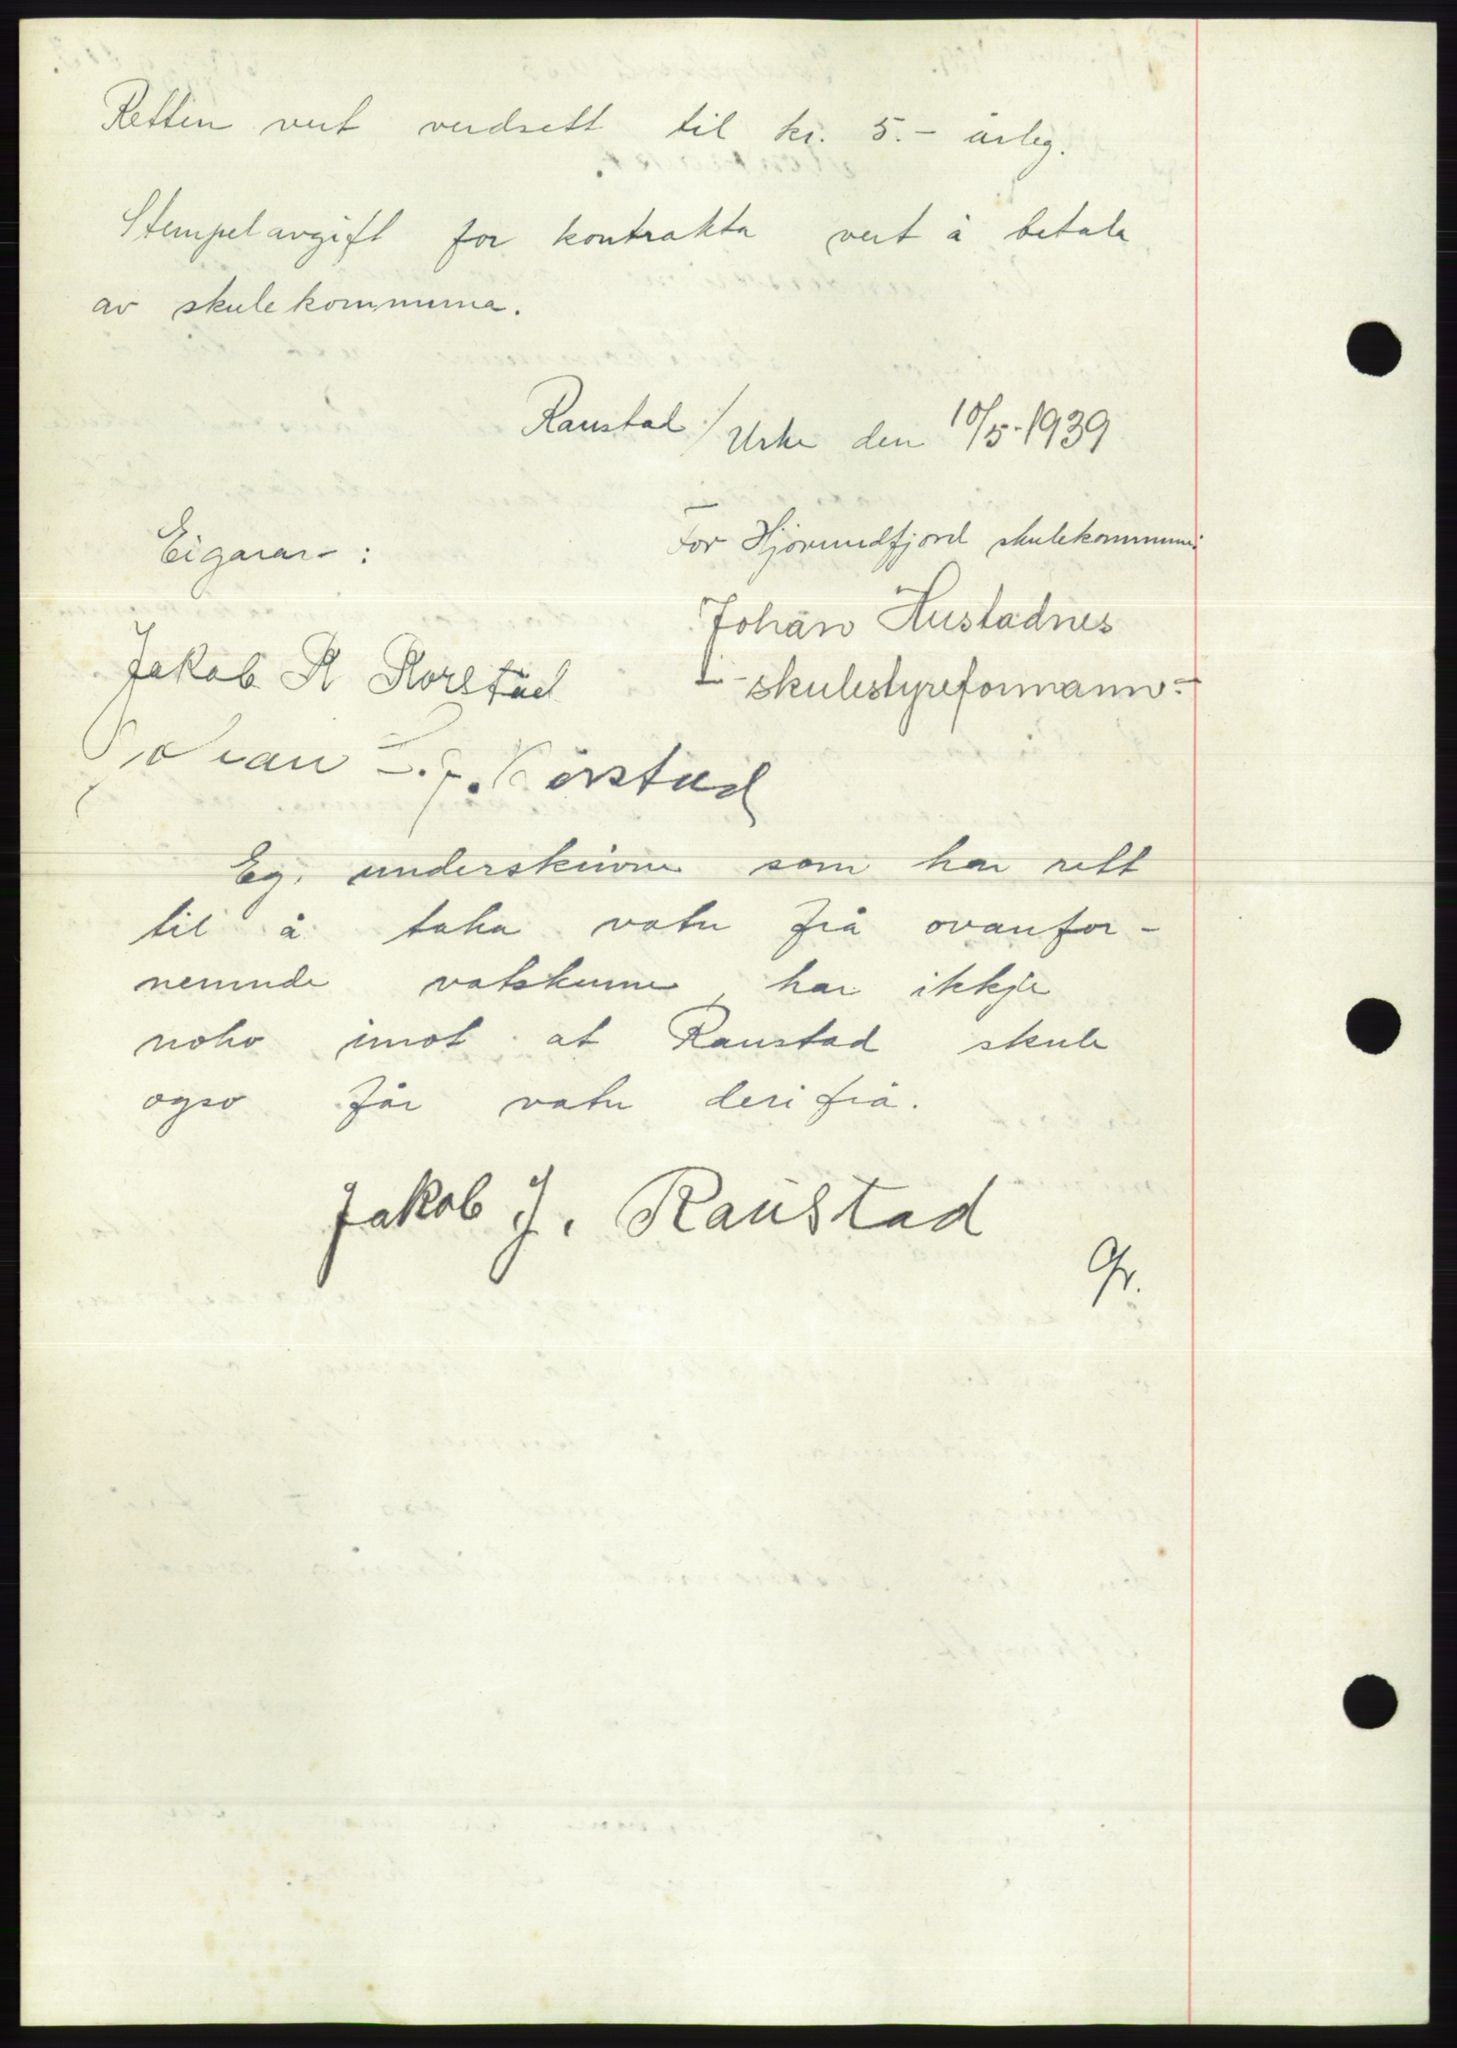 Retten vert verdsett til kr. 5.- årleg.
Stempelavgift for kontrakta vert å betala
av skulekommuna.
Raustad / Urke den 10/5-1939
Eigarar:
For Hjørundfjord skulekommune:
Johan Hustadnes
- skulestyreformann -
Jakob R Rørstad
Johan Rørstad
Eg, underskrivne som har rett
til å taka vatn frå ovanfor-
nemnde vatskumme, har ikkje
noko imot at Raustad skule
også får vatn derifrå.
Jakob J. Raustad
Gr.